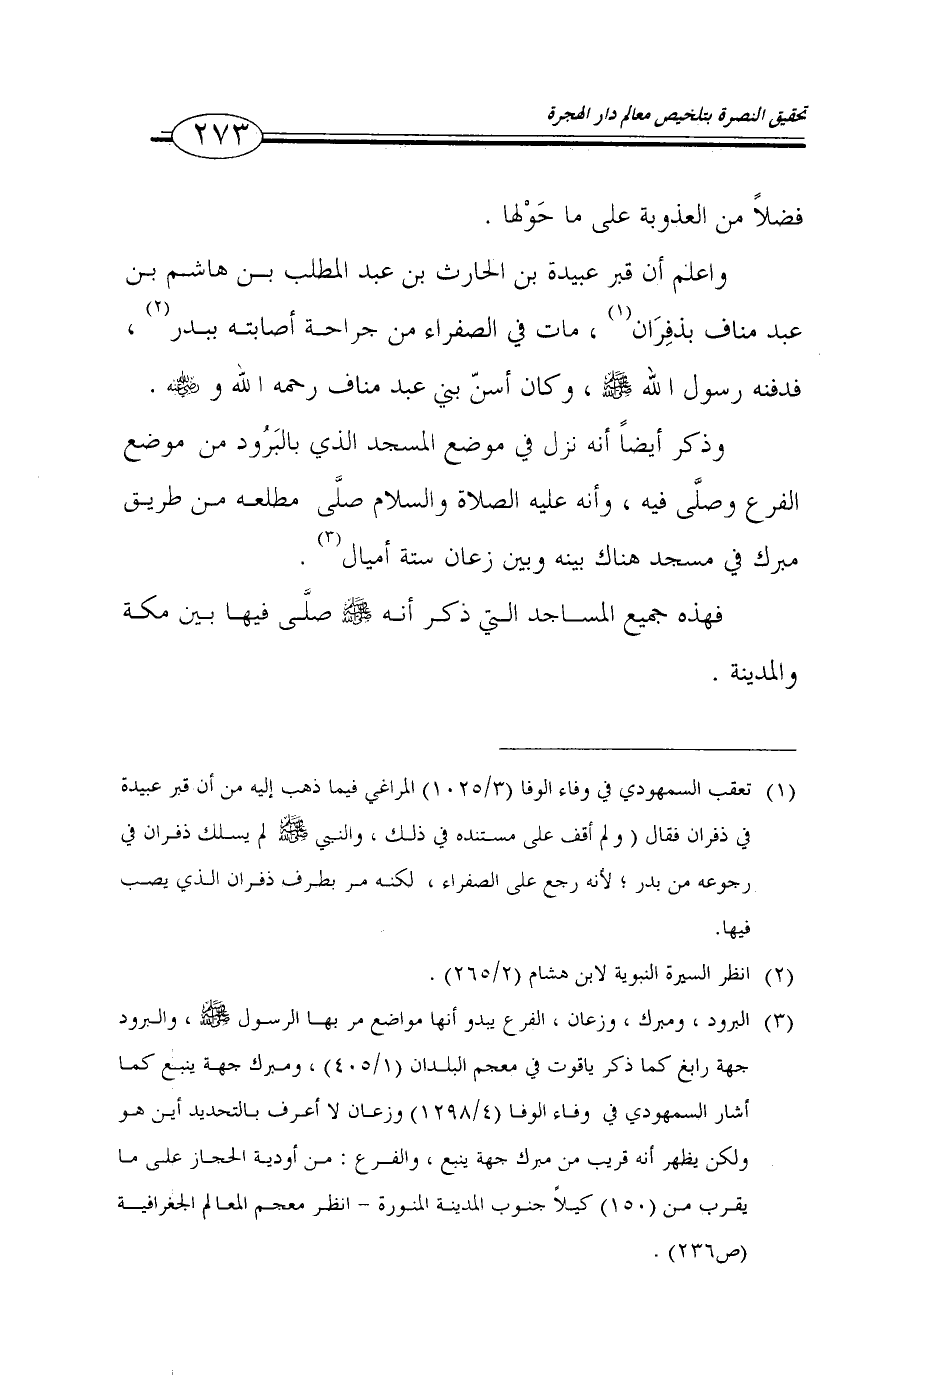 تحقيق النصرة بتلخيص معالم دار الهجرة
٢٧٣
فضلاً من العذوبة على ما حَوْلها .
واعلم أن قبر عبيدة بن الحارث بن عبد المطلب بـن هاشـم بـن
عبد مناف بذفِرَان(١) ، مات في الصفراء من جراحـة أصابتـه ببـدر(٢) ،
فدفنه رسول الله ﷺ ، وكان أسنّ بني عبد مناف رحمه الله و رضي الله عنه .
وذكر أيضاً أنه نزل في موضع المسجد الذي بالبَرُود من موضع
الفرع وصلَّى فيه ، وأنه عليه الصلاة والسلام صلَّى مطلعـه مـن طريـق
مبرك في مسجد هناك بينه وبين زعان ستة أميال(٣) .
فهذه جميع المساجد التي ذكـر أنـه ﷺ صلَّـى فيهـا بـين مكـة
والمدينة .
(١) تعقب السمهودي في وفاء الوفا (١٠٢٥/٣) المراغي فيما ذهب إليه من أن قبر عبيدة
في ذفران فقال ( ولم أقف على مستنده في ذلـك ، والنبي ﷺ لم يسـلك ذفـران في
رجوعه من بدر ؛ لأنه رجع على الصفراء ، لكنـه مـر بطـرف ذفـران الـذي يصـب
فيها.
(٢) انظر السيرة النبوية لابن هشام (٢٦٥/٢) .
(٣) البرود ، ومبرك ، وزعان ، الفرع يبدو أنها مواضع مر بهـا الرسول ﷺ ، والـبرود
جهة رابغ كما ذكر ياقوت في معجم البلدان (٤٠٥/١) ، ومـبرك جهـة ينبـع كمـا
أشار السمهودي في وفـاء الوفـا (١٢٩٨/٤) وزعـان لا أعـرف بـالتحديد أيـن هـو
ولكن يظهر أنه قريب من مبرك جهة ينبع ، والفـرع : مـن أوديـة الحجـاز علـى مـا
يقـرب مـن (١٥٠) كيـلاً جنـوب المدينـة المنـورة - انظـر معجـم المعـالم الجغرافيـة
(ص٢٣٦) .